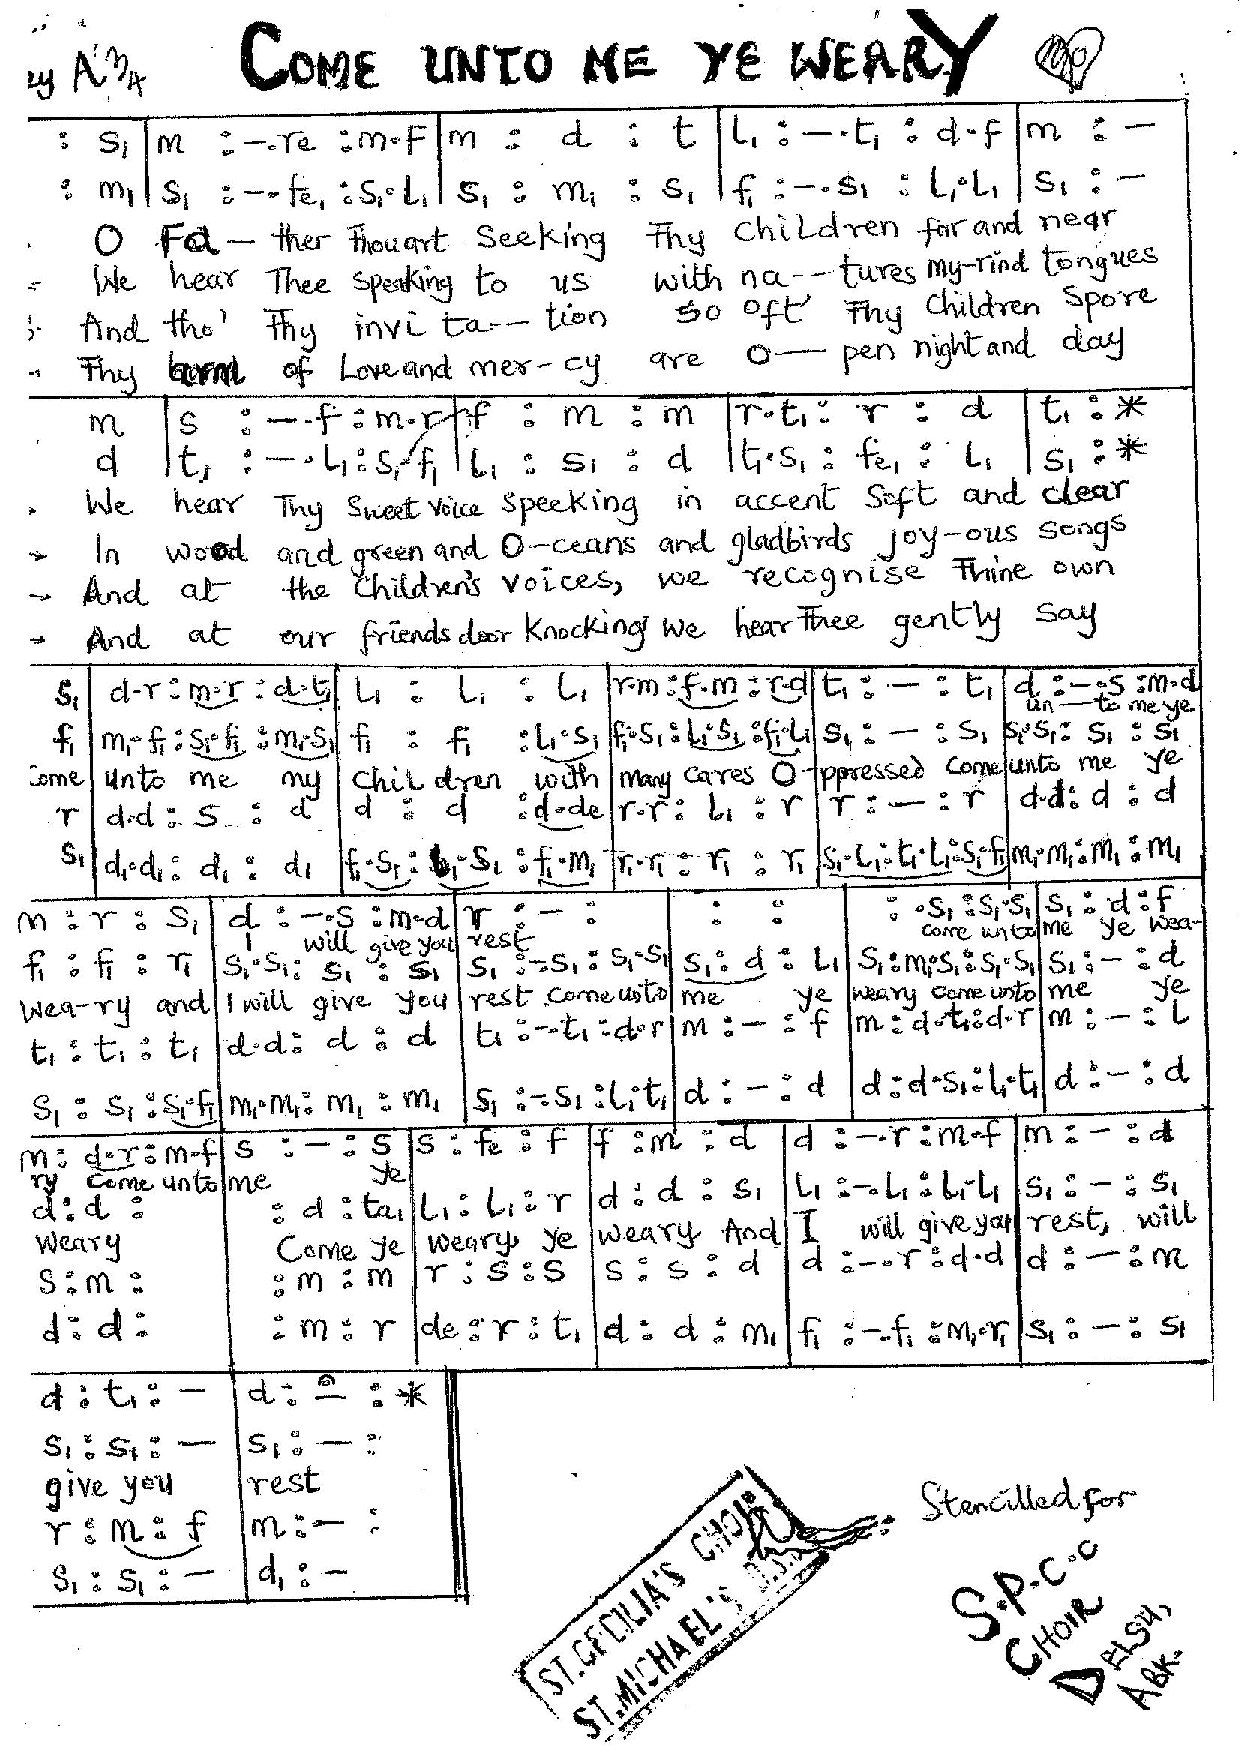 COME UNTO ME YE WEARY
: s₁ | m : -.re : m.f | m : d : t | l₁ : -.t₁ : d.f | m : -
: m₁ | s₁ : -.fe₁ : s₁.l₁ | s₁ : m₁ : s₁ | f₁ : -.s₁ : l₁.l₁ | s₁ : -
O Fa - ther Thou art Seeking Thy Children far and near
We hear Thee speaking to us with na -- tures my-rind tongues
And tho' Thy invi ta -- tion so oft Thy Children Spore
Thy of Love and mer-cy are O — pen night and day
m | s : -.f : m.r | f : m : m | r.t₁ : r : d | t₁ : *
d | t₁ : -.l₁ : s₁.f₁ | l₁ : s₁ : d | t₁.s₁ : fe₁ : l₁ | s₁ : *
We hear Thy Sweet voice Speeking in accent Soft and clear
In wood and green and O-ceans and glad birds joy-ous songs
And at the Children's voices, we recognise Thine own
And at our friends door Knocking We hear Thee gently say
s₁ | d.r : m.r : d.t₁ | l₁ : l₁ : l₁ | r.m : f.m : r.d | t₁ : - : t₁ | d : -.s : m.d
un — to me ye
f₁ | m₁.f₁ : s₁.f₁ : m₁.s₁ | f₁ : f₁ : l₁.s₁ | f₁.s₁ : l₁.s₁ : f₁.l₁ | s₁ : - : s₁ | s₁.s₁ : s₁ : s₁
Come unto me my Chil dren with many cares O-ppressed come unto me ye
r | d.d : s : d | d : d : d.de | r.r : l₁ : r | r : - : r | d.d : d : d
s₁ | d₁.d₁ : d₁ : d₁ | f₁.s₁ : l₁.s₁ : f₁.m₁ | r₁.r₁ : r₁ : r₁ | s₁.l₁ : t₁.l₁ : s₁.f₁ | m₁.m₁ : m₁ : m₁
m : r : s₁ | d : -.s : m.d | r : - : | : : | : .s₁ : s₁.s₁ | s₁ : d : f
I will give you rest come unto me ye wea-
f₁ : f₁ : r₁ | s₁.s₁ : s₁ : s₁ | s₁ : -.s₁ : s₁.s₁ | s₁ : d : l₁ | s₁ : m₁.s₁ : s₁.s₁ | s₁ : - : d
Wea-ry and I will give you rest come unto me ye weary come unto me ye
t₁ : t₁ : t₁ | d.d : d : d | t₁ : -.t₁ : d.r | m : - : f | m : d.t₁ : d.r | m : - : l
s₁ : s₁ : s₁.f₁ | m₁.m₁ : m₁ : m₁ | s₁ : -.s₁ : l₁.t₁ | d : - : d | d : d.s₁ : l₁.t₁ | d : - : d
m : d.r : m.f | s : - : s | s : fe : f | f : m : d | d : -.r : m.f | m : - : d
ry come unto me ye
d : d : | : d : ta₁ | l₁ : l₁ : r | d : d : s₁ | l₁ : -.l₁ : l₁.l₁ | s₁ : - : s₁
Weary Come ye weary ye weary And I will give you rest, will
s : m : | : m : m | r : s : s | s : s : d | d : -.r : d.d | d : - : m
d : d : | : m : r | de : r : t₁ | d : d : m₁ | f₁ : -.f₁ : m₁.r₁ | s₁ : - : s₁
d : t₁ : - | d : - : *
s₁ : s₁ : - | s₁ : - :
give you rest
r : m : f | m : - :
s₁ : s₁ : - | d₁ : -
ST. CECILIA'S CHOIR
ST. MICHAEL'S
Stencilled for
S.P.C.C
CHOIR
DELSU,
ABK.